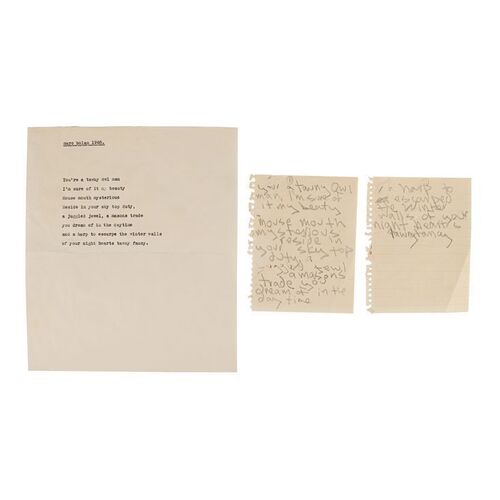 marc bolan 1968.
You're a tawny owl man
I'm sure of it my beauty
Mouse mouth mysterious
Reside in your sky top duty,
a jungled jewel, a masons trade
you dream of in the daytime
and a harp to escarpe the winter walls
of your night hearts tawny fanny.
your a Tawny Owl
man I'm sure of
it my beauty
mouse mouth
mysterious
reside in
your sky top
duty
jewel
a masons
trade you
dream of in the
day time
harp to
escarped
the winter
walls of your
night hearts
tawny